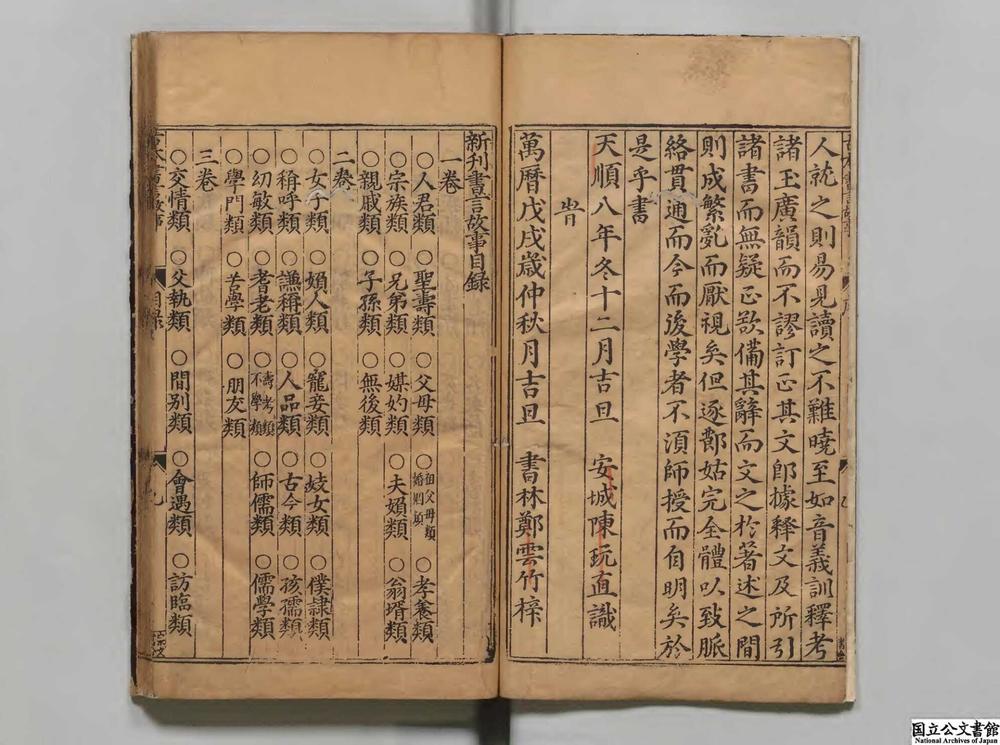 人就之則易見讀之不難曉至如音義訓釋考
諸玉廣韻而不謬訂正其文郎據释文及所引
諸書而無疑正欲備其辭而文之扵著述之間
則成繁亂而厭視矣但逐鄭姑完全體以致脈
絡貫通而今而後學者不湏師授而自明矣於
是乎書
天順八年冬十二月吉旦 安城陳玩直識
旹
萬曆戊戌歲仲秋月吉旦 書林鄭雲竹梓
新刊書言故事目録
一卷
○人君類 ○聖壽類 ○父母類 ○祖父母類 婚姻類 ○孝養類
○宗族類 ○兄弟類 ○媒妁類 ○夫婦類 ○翁壻類
○親戚類 ○子孫類 ○無後類
二卷
○女子類 ○婦人類 ○寵妾類 ○妓女類 ○僕隷類
○稱呼類 ○謙稱類 ○人品類 ○古今類 ○孩孺類
○幼敏類 ○耆老類 ○壽考類 不學類 ○師儒類 ○儒學類
○學門類 ○苦學類 ○朋友類
三卷
○交情類 ○父執類 ○間別類 ○會遇類 ○訪臨類
目録
国立公文書館
National Archives of Japan